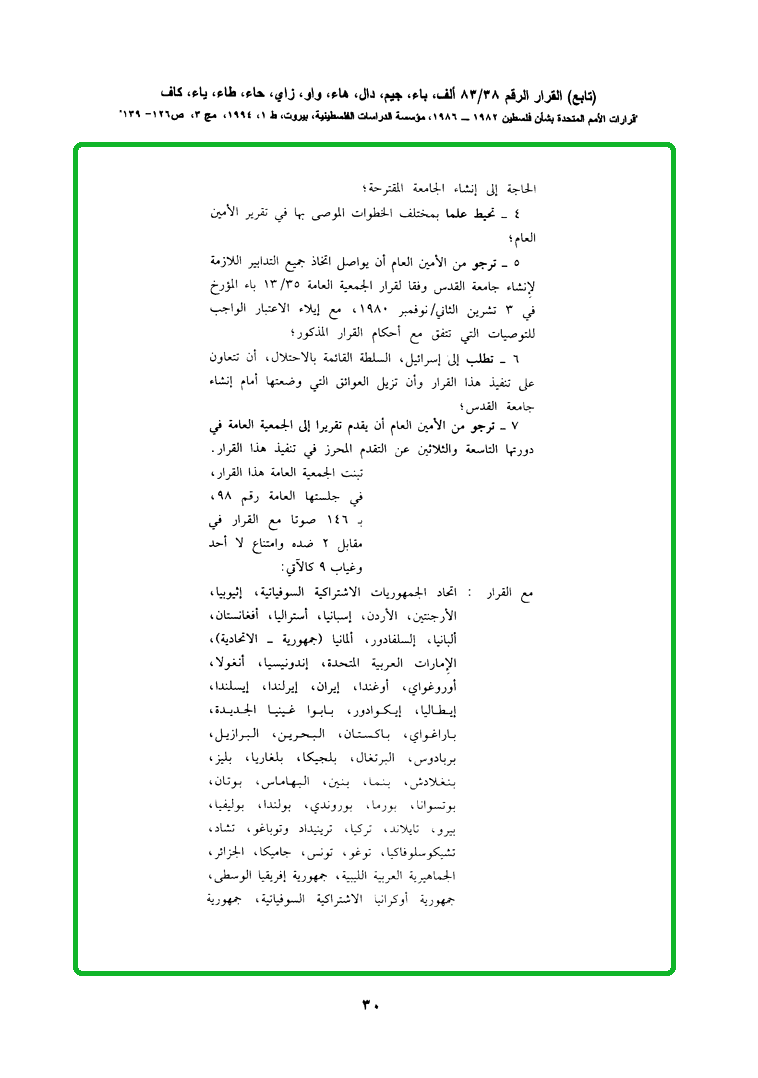 (تابع) القرار الرقم ٨٣/٣٨ ألف، باء، جيم، دال، هاء، واو، زاي، حاء، طاء، ياء، كاف
"قرارات الأمم المتحدة بشأن فلسطين ١٩٨٢ ــ ١٩٨٦، مؤسسة الدراسات الفلسطينية، بيروت، ط ١، ١٩٩٤، مج ٣، ص١٢٦– ١٣٩"
الحاجة إلى إنشاء الجامعة المقترحة؛
٤ ـ تحيط علما بمختلف الخطوات الموصى بها في تقرير الأمين
العام؛
٥ ـ ترجو من الأمين العام أن يواصل اتخاذ جميع التدابير اللازمة
لإنشاء جامعة القدس وفقا لقرار الجمعية العامة ١٣/٣٥ باء المؤرخ
في ٣ تشرين الثاني/نوفمبر ١٩٨٠، مع إيلاء الاعتبار الواجب
للتوصيات التي تتفق مع أحكام القرار المذكور؛
٦ ـ تطلب إلى إسرائيل، السلطة القائمة بالاحتلال، أن تتعاون
على تنفيذ هذا القرار وأن تزيل العوائق التي وضعتها أمام إنشاء
جامعة القدس؛
٧ ـ ترجو من الأمين العام أن يقدم تقريرا إلى الجمعية العامة في
دورتها التاسعة والثلاثين عن التقدم المحرز في تنفيذ هذا القرار.
تبنت الجمعية العامة هذا القرار،
في جلستها العامة رقم ٩٨،
بـ ١٤٦ صوتا مع القرار في
مقابل ٢ ضده وامتناع لا أحد
وغياب ٩ كالآتي:
مع القرار : اتحاد الجمهوريات الاشتراكية السوفياتية، إثيوبيا،
الأرجنتين، الأردن، إسبانيا، أستراليا، أفغانستان،
ألبانيا، إلسلفادور، ألمانيا (جمهورية ـ الاتحادية)،
الإمارات العربية المتحدة، إندونيسيا، أنغولا،
أوروغواي، أوغندا، إيران، إيرلندا، إيسلندا،
إيطاليا، إيكوادور، بابوا غينيا الجديدة،
باراغواي، باكستان، البحرين، البرازيل،
بربادوس، البرتغال، بلجيكا، بلغاريا، بليز،
بنغلادش، بنما، بنين، البهاماس، بوتان،
بوتسوانا، بورما، بوروندي، بولندا، بوليفيا،
بيرو، تايلاند، تركيا، ترينيداد وتوباغو، تشاد،
تشيكوسلوفاكيا، توغو، تونس، جاميكا، الجزائر،
الجماهيرية العربية الليبية، جمهورية إفريقيا الوسطى،
جمهورية أوكرانيا الاشتراكية السوفياتية، جمهورية
٣٠